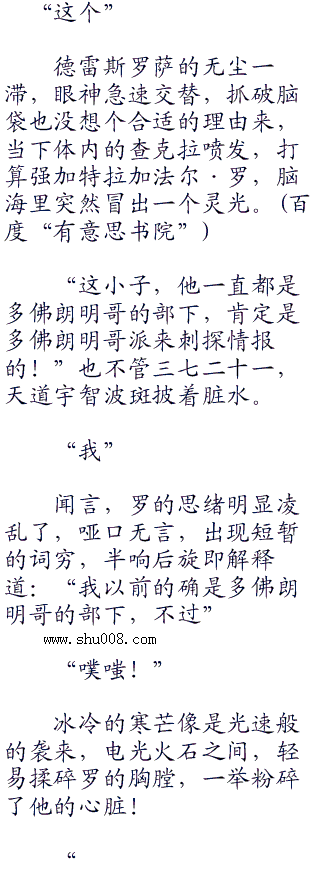 “这个”
德雷斯罗萨的无尘一
滞，眼神急速交替，抓破脑
袋也没想个合适的理由来，
当下体内的查克拉喷发，打
算强加特拉加法尔·罗，脑
海里突然冒出一个灵光。(百
度“有意思书院”)
“这小子，他一直都是
多佛朗明哥的部下，肯定是
多佛朗明哥派来刺探情报
的！”也不管三七二十一，
天道宇智波斑披着脏水。
“我”
闻言，罗的思绪明显凌
乱了，哑口无言，出现短暂
的词穷，半响后旋即解释
道：“我以前的确是多佛朗
明哥的部下，不过”
www.shu008.com
“噗嗤！”
冰冷的寒芒像是光速般
的袭来，电光火石之间，轻
易揉碎罗的胸膛，一举粉碎
了他的心脏！
“